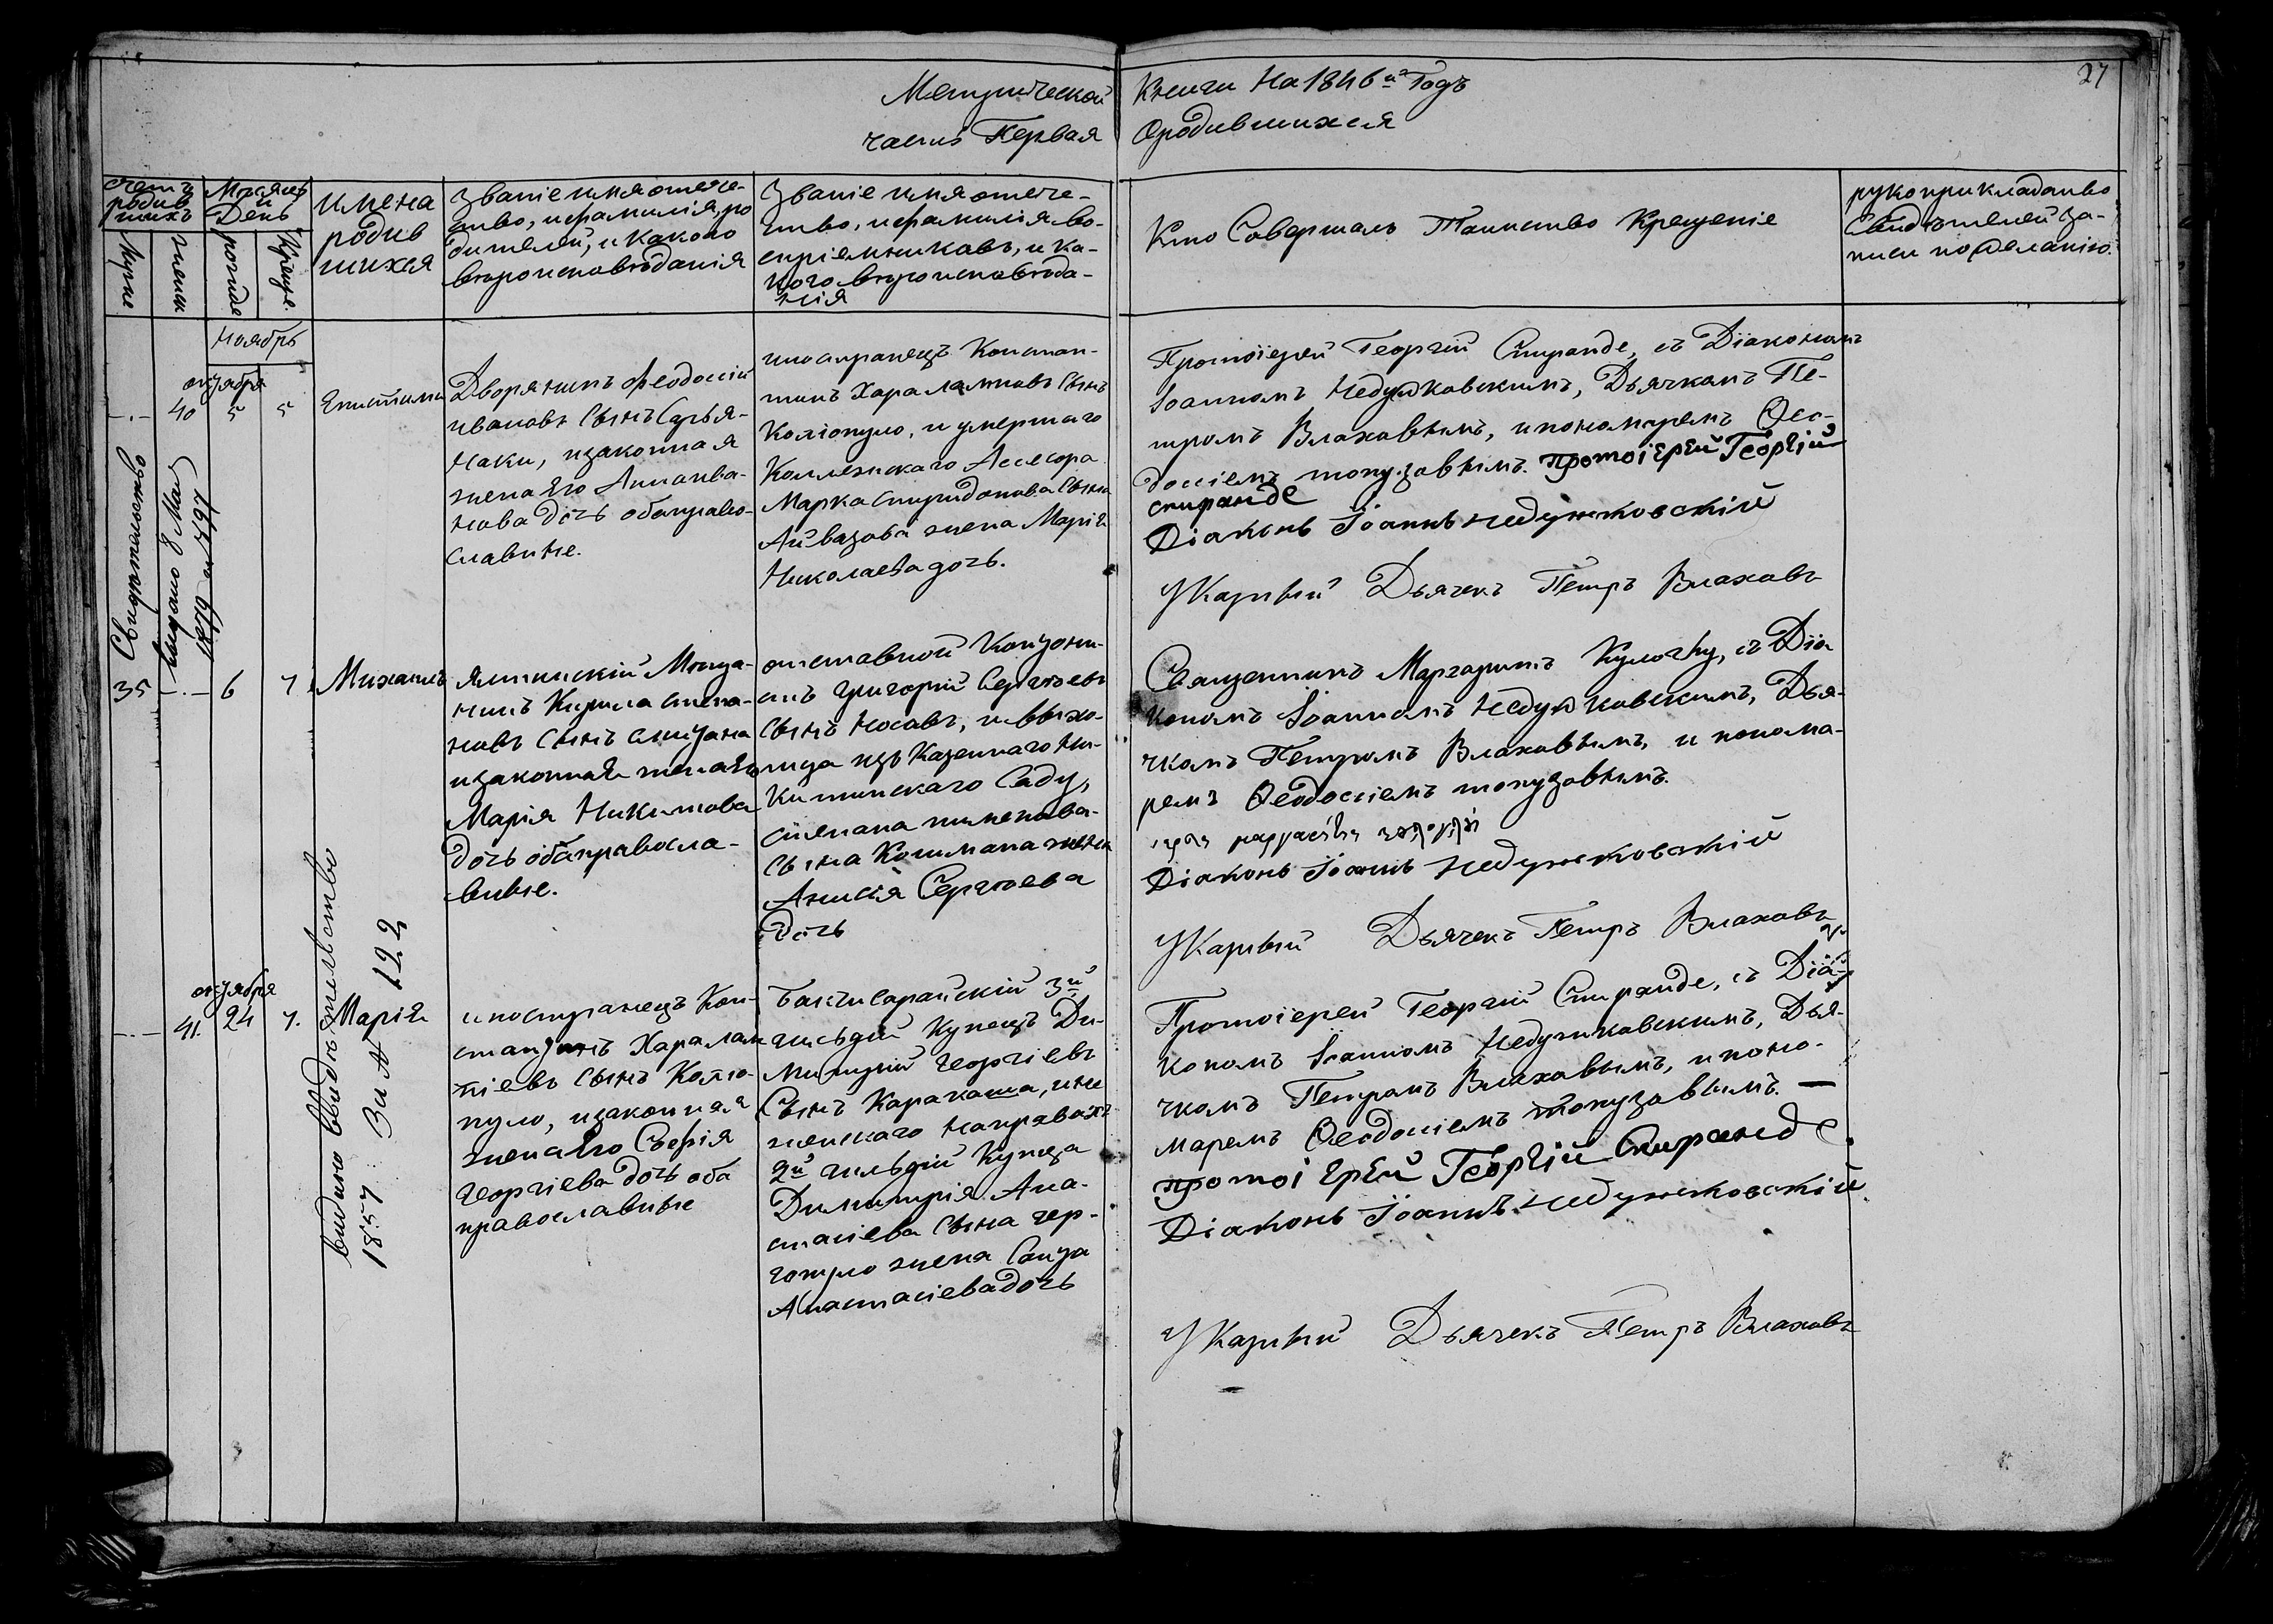 Метрической Книги На 1846й Годъ
27
часть Первая О родившихся
счетъ родив шихъ
Мѣсяцъ и День
имена родив шихся
Званіе имя отече-
ство, и фамилія, ро
дителей, и какого
вѣроисповѣданія
Званіе имя отече-
ство, и фамилія во-
спріемниковъ, и ка-
кого вѣроисповѣда-
нія
Кто Совершалъ Таинство Крещеніе
рукоприкладство
Свидѣтелей за-
писи по желанію.
Ноябрь
октября
40 5 5
Дворянинъ Феодосій
ивановъ Сынъ
и законная
жена Его Анна ива-
нова дочь оба право-
славные.
иностранецъ Констан-
тинъ Хараламповъ Сынъ
Коліопуло, и умершаго
Коллежскаго Ассесора
Марка Спиридонова Сына
Айвазова жена Марія
Николаева дочь.
Протоіерей Георгій Спиранде, съ Діакономъ
Іоанномъ Недужковскимъ, Дьячкомъ Пе-
тромъ Влаховымъ, и пономаремъ Ѳео-
досіемъ топузовымъ. протоіерей Георгій
спиранде
Діаконъ Іоаннъ недужковскій
Указный Дьячекъ Петръ Влаховъ
Свидѣтельство
выдано 8 Мая
35 6 7 Михаилъ
ялтинскій Мѣща-
нинъ Кирила степа-
новъ Сынъ
и законная жена Его
Марія Никитова
дочь оба правосла-
вные.
отставной
Григорій Сергѣевъ
Сынъ Носовъ,
изъ Казеннаго Ни-
китинскаго Саду,
степана
Сына жена
Анисія Сергѣева
дочь
Священникъ Маргаритъ съ Діа
кономъ Іоанномъ Недужковскимъ, Дья-
чкомъ Петромъ Влаховымъ, и понома-
ремъ Ѳеодосіемъ топузовымъ.
Діаконъ Іоаннъ недужковскій
Указный Дьячекъ Петръ Влаховъ
выдано свидѣтельство
1857 За № 122
октября
41. 24 7. Марія
иностранецъ Кон-
стантинъ Харалам
піевъ Сынъ Коліо-
пуло, и законная
жена Его Софія
Георгіева дочь оба
православные
Бакчисарайскій 3й
гильдіи Купецъ Ди-
митрій Георгіевъ
Сынъ Каракаша, и
2й гильдіи Купца
Димитрія Ана-
стасіева Сына
жена
Анастасіева дочь
Протоіерей Георгій Спиранде, съ Діа-
кономъ Іоанномъ Недужковскимъ, Дья-
чкомъ Петромъ Влаховымъ, и поно-
маремъ Ѳеодосіемъ топузовымъ. —
протоіерей Георгій Спиранде.
Діаконъ Іоаннъ недужковскій.
Указный Дьячекъ Петръ Влаховъ